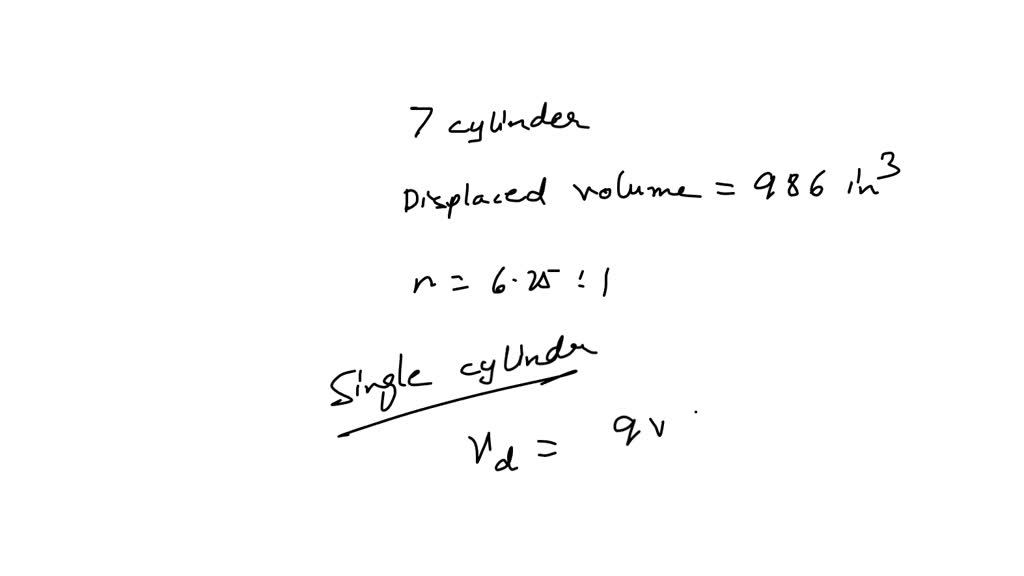 7 cylinder
Displaced volume = 986 in³
r = 6.25 : 1
Single cylinder
V_d = 9